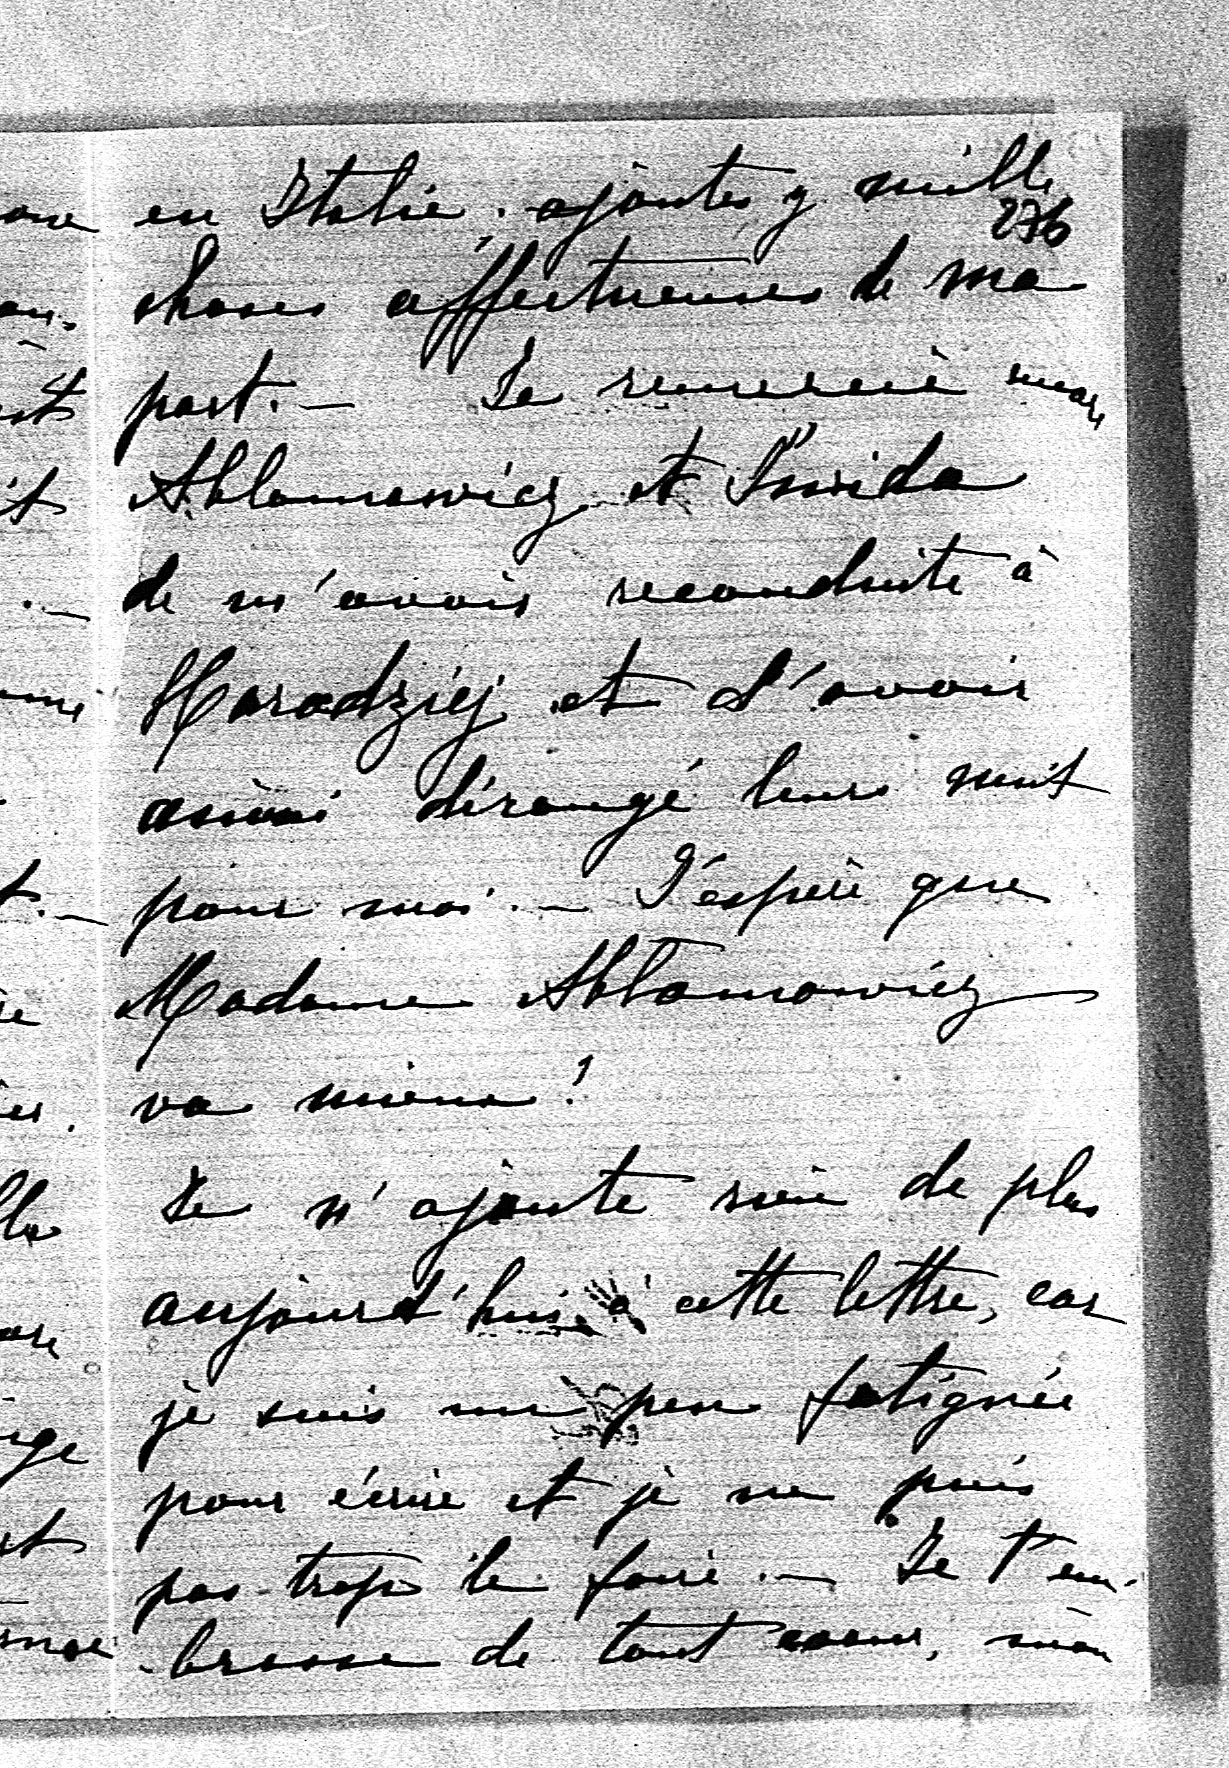 en Italie. ajoutes y mille
276
choses affectueuses de ma
part. — Je remercie
Ablamowicz et Świda
de m'avoir reconduite à
Horodziej et d'avoir
ainsi dérangé leurs nuit
pour moi. — J'espère que
Madame Ablamowicz
va mieux!
Je n'ajoute rien de plus
aujourd'hui à cette lettre, car
je suis un peu fatiguée
pour écrire et je ne puis
pas trop le faire. — Je t'em-
brasse de tout coeur, mon